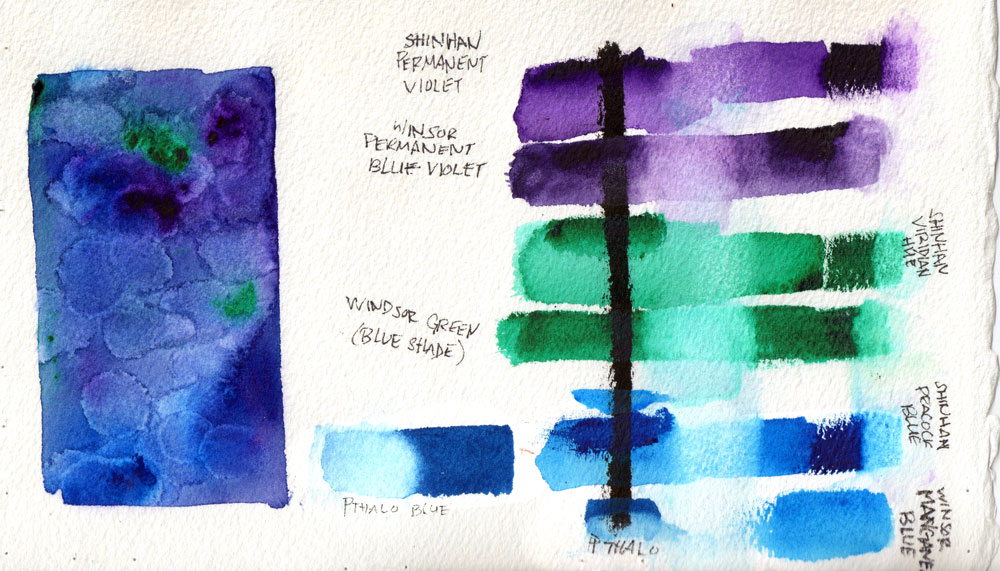 SHINHAN
PERMANENT
VIOLET
WINSOR
PERMANENT
BLUE-VIOLET
SHINHAN
VIRIDIAN
HUE
WINDSOR GREEN
(BLUE SHADE)
SHINHAN
PEACOCK
BLUE
PTHALO BLUE
PTHALO
WINSOR
MANGANE
BLUE